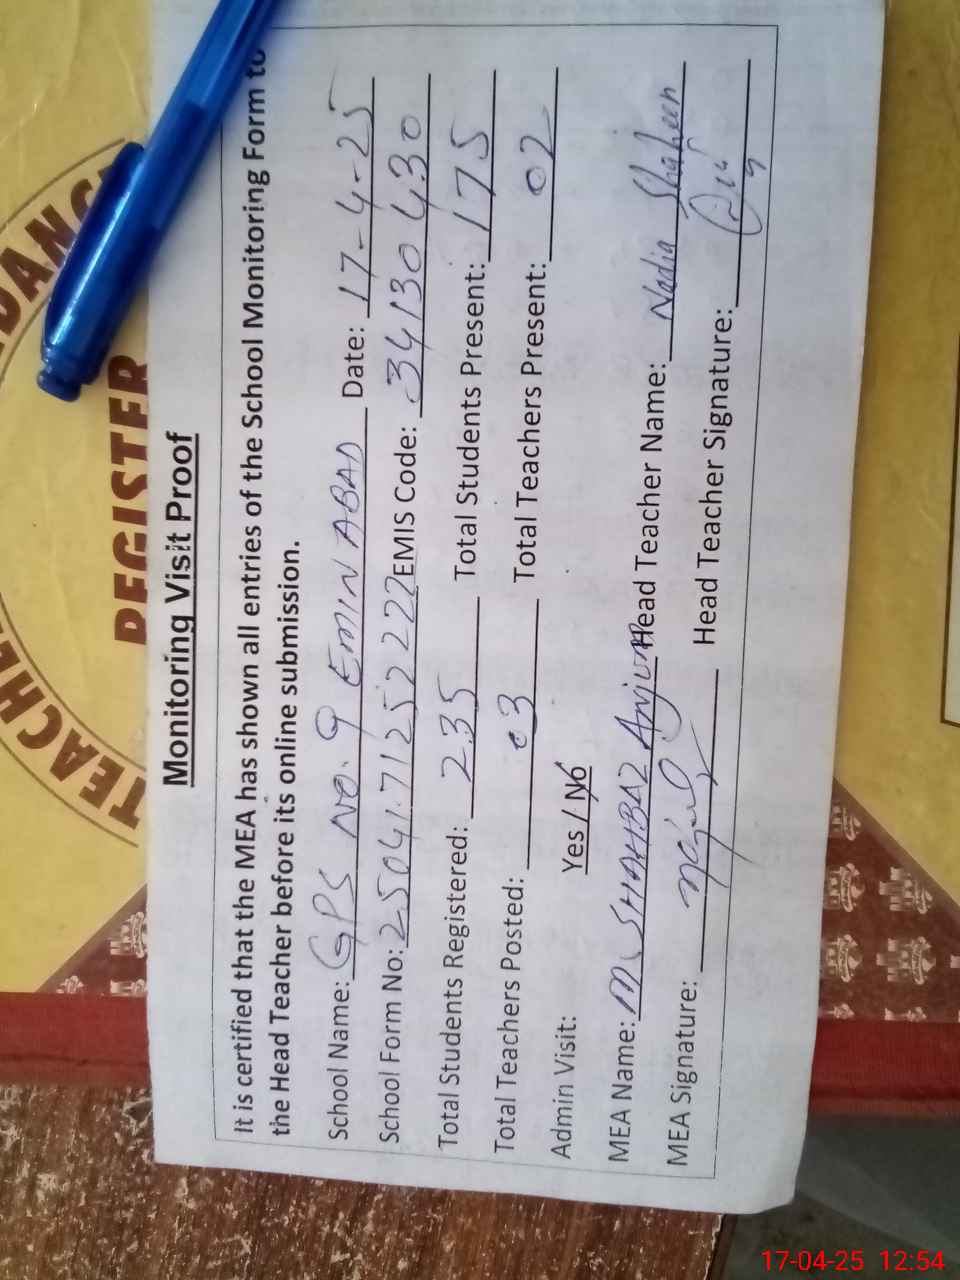 TEACHE
DANC
REGISTER
Monitoring Visit Proof
It is certified that the MEA has shown all entries of the School Monitoring Form to
the Head Teacher before its online submission.
School Name: GPS No. 9 EMINABAD Date: 17-4-25
School Form No: 2504171252222 EMIS Code: 34130430
Total Students Registered: 235 Total Students Present: 175
Total Teachers Posted: 03 Total Teachers Present: 02
Admin Visit: Yes / No
MEA Name: SHAHBAZ Anjum Head Teacher Name: Nadia Shaheen
MEA Signature: Head Teacher Signature:
17-04-25 12:54